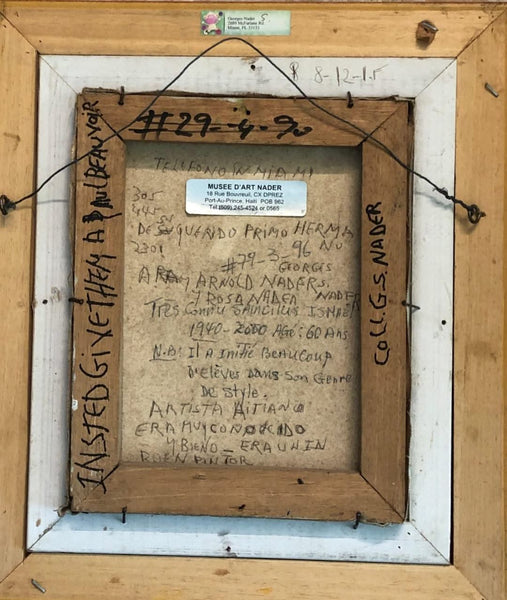 Georges Nader S
Miami, FL 33133
8-12-15
#29-4-90
INSTED GIVE THEM A
COLL. G.S. NADER
TELEFONO IN MIAMI
MUSEE D'ART NADER
18 Rue Bouvreuil, CX DPREZ
Port-Au-Prince, Haiti POB 962
Tel (509) 245-4524 or 0565
305
442
DE SU QUERIDO PRIMO HERMA
2301
NO
#79-3-96
GEORGES
NADER
ARNOLD NADER S.
Y ROSA NADER
TRES CONNU
1940-2000 AGE: 60 Ans
N.B: Il A Initié BEAUCOUP
D'ELÈVES DANS SON GENRE
DE STYLE.
ARTISTA AITIANO
ERA MUY CONOKIDO
Y BIENO_ ERA UN
BUEN PINTOR